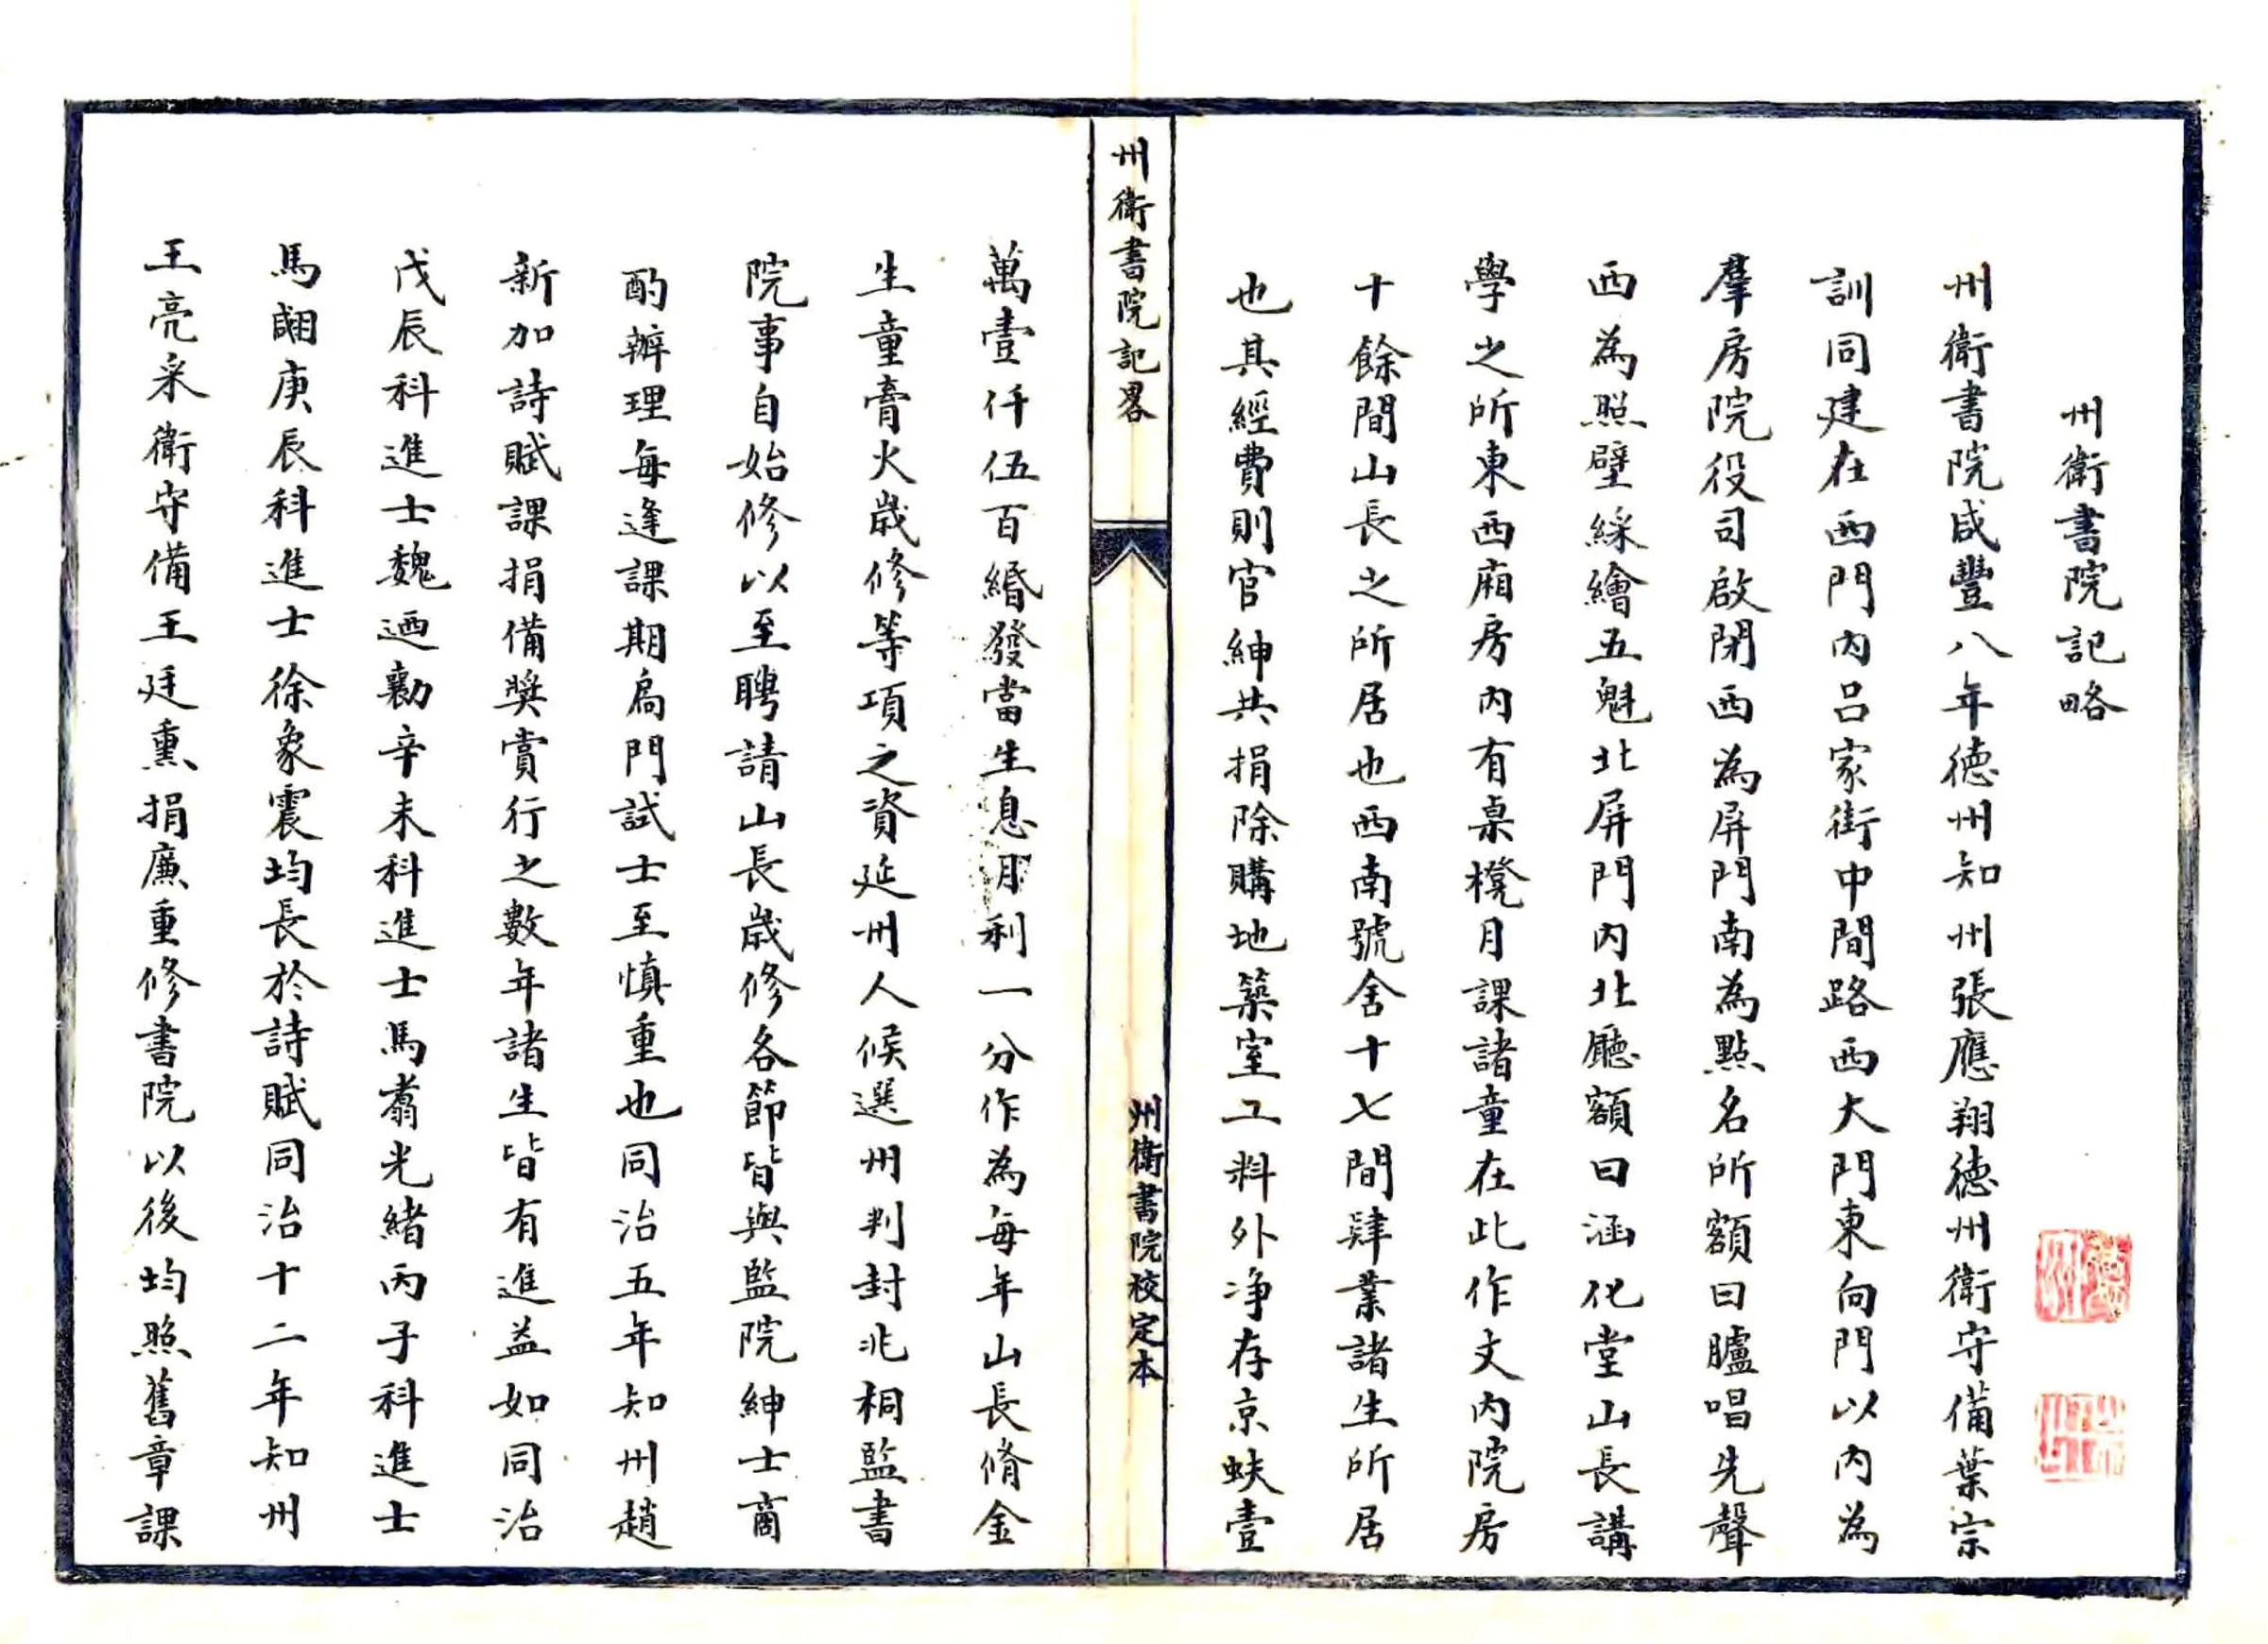 州衛書院記略
州衛書院咸豐八年德州知州張應翔德州衛守備葉宗
訓同建在西門內呂家街中間路西大門東向門以內為
羣房院役司啟閉西為屏門南為點名所額曰臚唱先聲
西為照壁綵繪五魁北屏門內北廳額曰涵化堂山長講
學之所東西廂房內有桌櫈月課諸童在此作文內院房
十餘間山長之所居也西南號舍十七間肄業諸生所居
也其經費則官紳共捐除購地築室工料外净存京蚨壹
州衛書院記畧
州衛書院校定本
萬壹仟伍百緡發當生息月利一分作為每年山長脩金
生童膏火歲修等項之資延州人候選州判封兆桐監書
院事自始修以至聘請山長歲修各節皆與監院紳士商
酌辦理每逢課期扃門試士至慎重也同治五年知州趙
新加詩賦課捐備獎賞行之數年諸生皆有進益如同治
戊辰科進士魏迺勷辛未科進士馬翥光緒丙子科進士
馬翮庚辰科進士徐象震均長於詩賦同治十二年知州
王亮采衛守備王廷熏捐廉重修書院以後均照舊章課